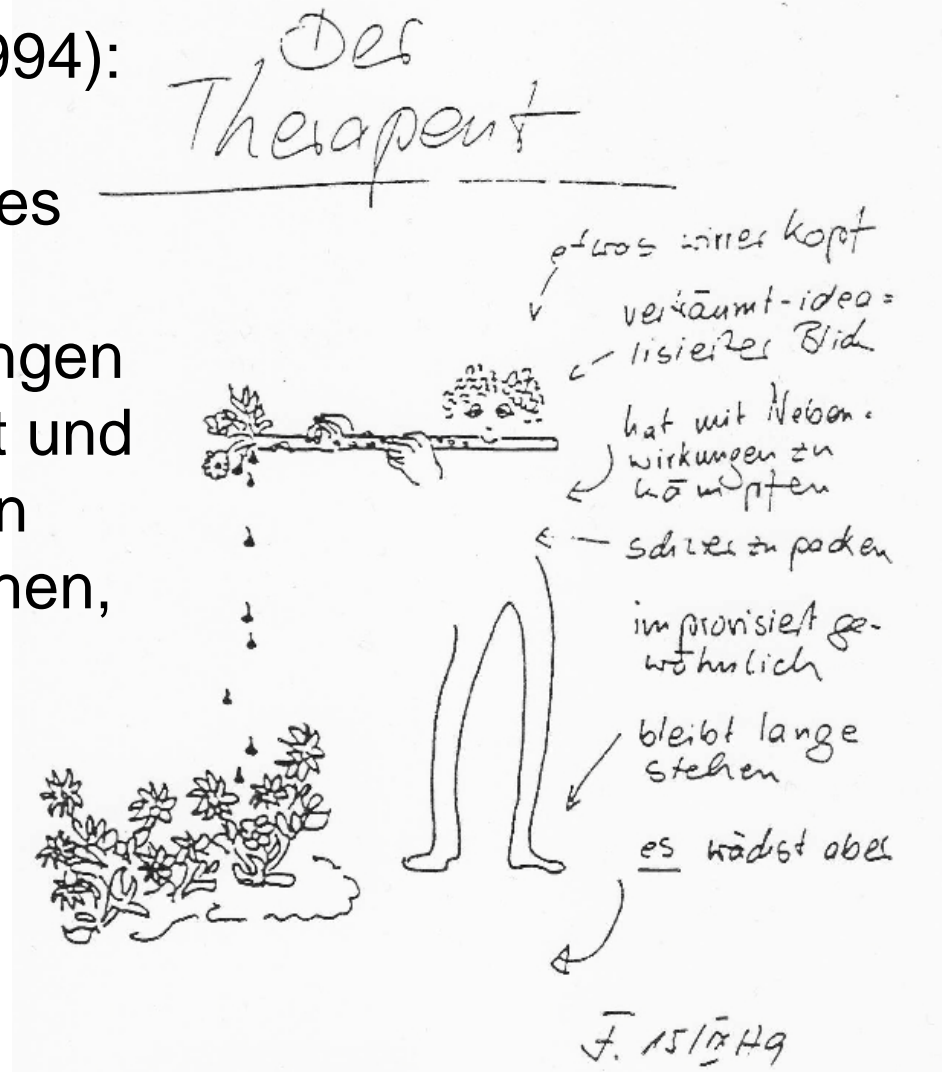 994):
es
ngen
t und
n
nen,
Der
Therapeut
etwas wirrer Kopf
verträumt-idea=
lisierter Blick
hat mit Neben-
wirkungen zu
kämpfen
schwer zu packen
improvisiert ge-
wöhnlich
bleibt lange
stehen
es wächst aber
F. 15/IX